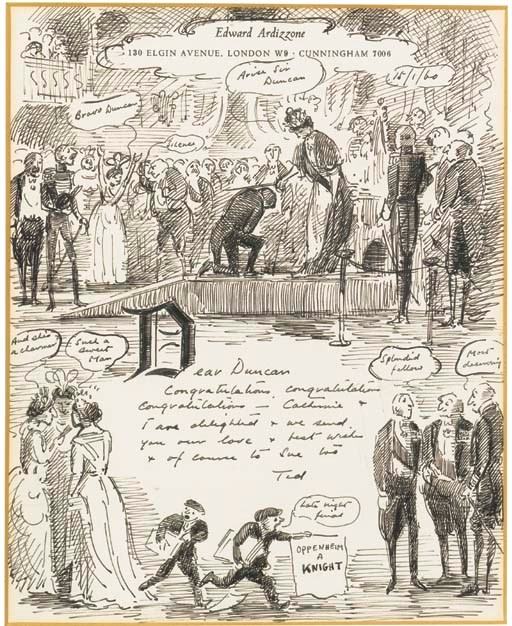 Edward Ardizzone
130 ELGIN AVENUE, LONDON W9 · CUNNINGHAM 7006
Arise Sir
Duncan
15/1/60
Bravo Duncan
Silence
And such
a charmer
Such a
sweet
Man
Dear Duncan
Congratulations, congratulations
congratulations — Catherine &
I are delighted & we send
you our love & best wishes
& of course to Sue too
Ted
Splendid
fellow
Most
deserving
Late night
final
OPPENHEIM
A
KNIGHT